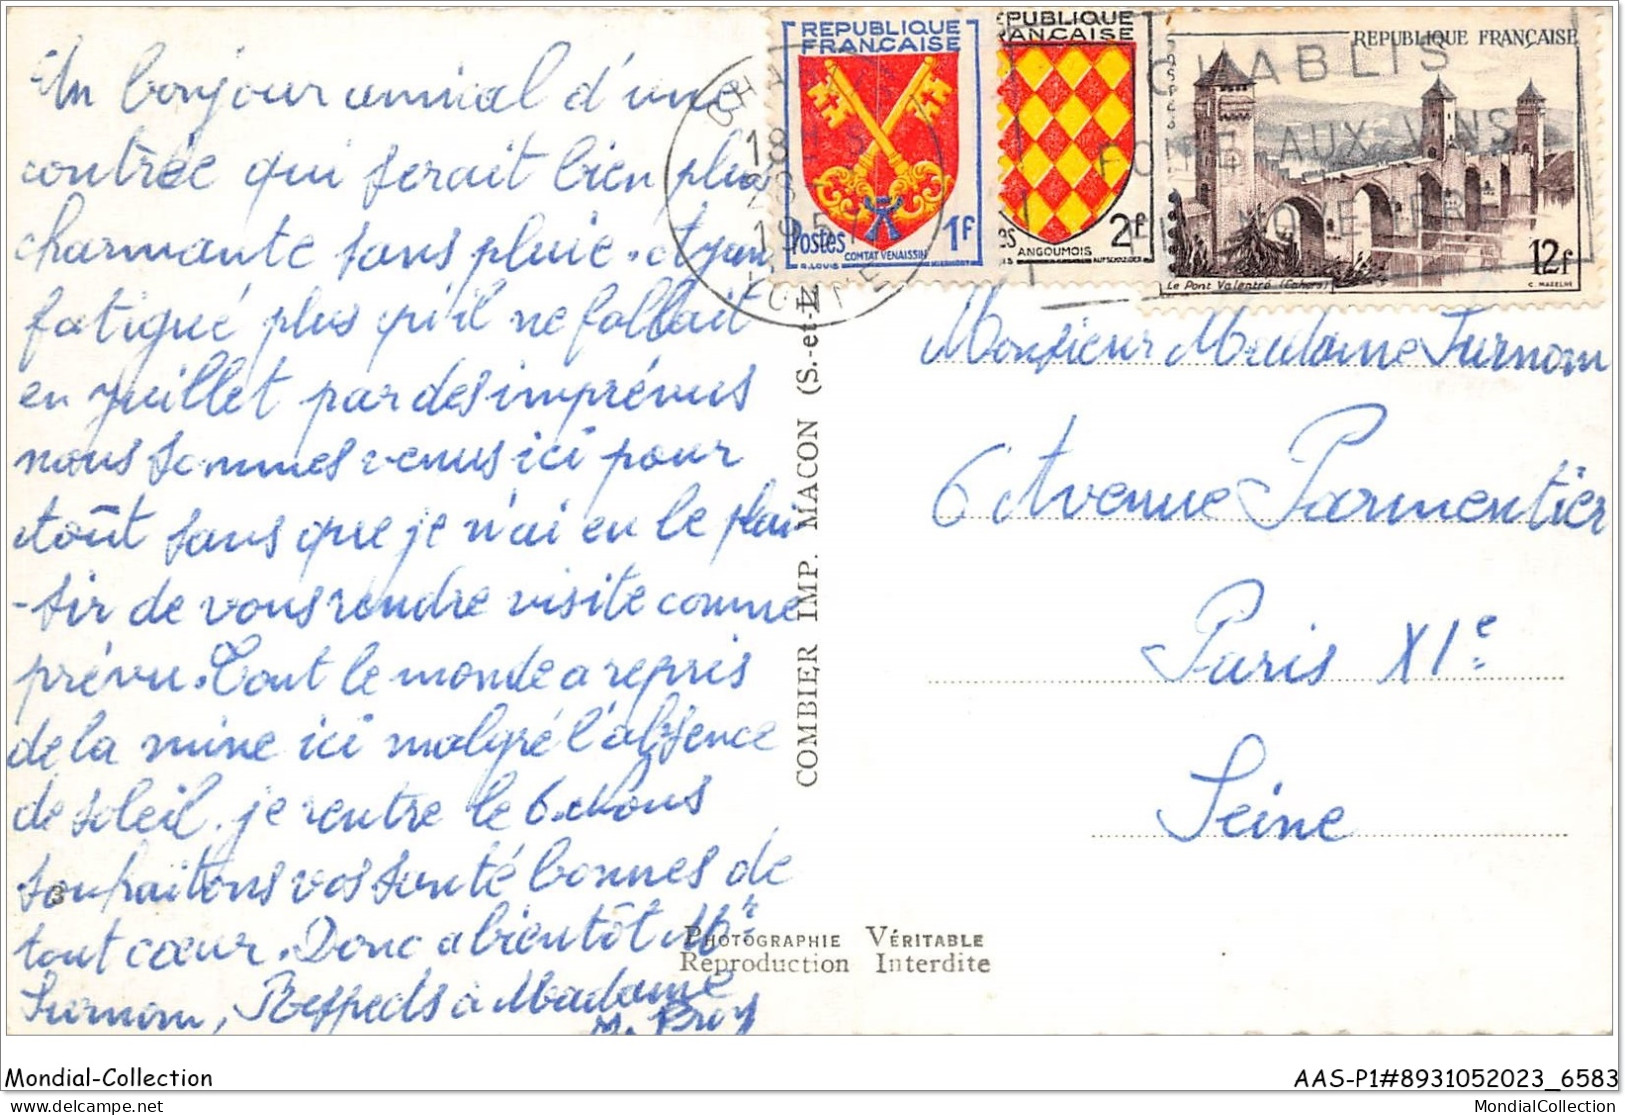 Un bonjour amical d'une
contrée qui serait bien plus
charmante sans pluie. Ayant
fatigué plus qu'il ne fallait
en juillet par des imprévus
nous sommes venus ici pour
Août sans que je n'ai eu le plai-
-sir de vous rendre visite comme
prévu. Tout le monde a repris
de la mine ici malgré l'absence
de soleil. je rentre le 6. Nous
souhaitons vos santé bonnes de
tout cœur. Donc a bientôt Mr
Surnom, Respects à Madame
3
COMBIER IMP. MACON (S.-et-L.)
PHOTOGRAPHIE VÉRITABLE
Reproduction Interdite
REPUBLIQUE
FRANÇAISE
Postes 1F
COMTAT VENAISSIN
REPUBLIQUE
FRANÇAISE
2F
ANGOUMOIS
REPUBLIQUE FRANÇAISE
12F
Le Pont Valentré (Cahors)
C. MAZELIN
CHABLIS
18H
YONNE
CHABLIS
AUX VINS
Monsieur Madame Surnom
6 Avenue Parmentier
Paris XIe
Seine
Mondial-Collection
AAS-P1#8931052023_6583
delcampe.net
MondialCollection